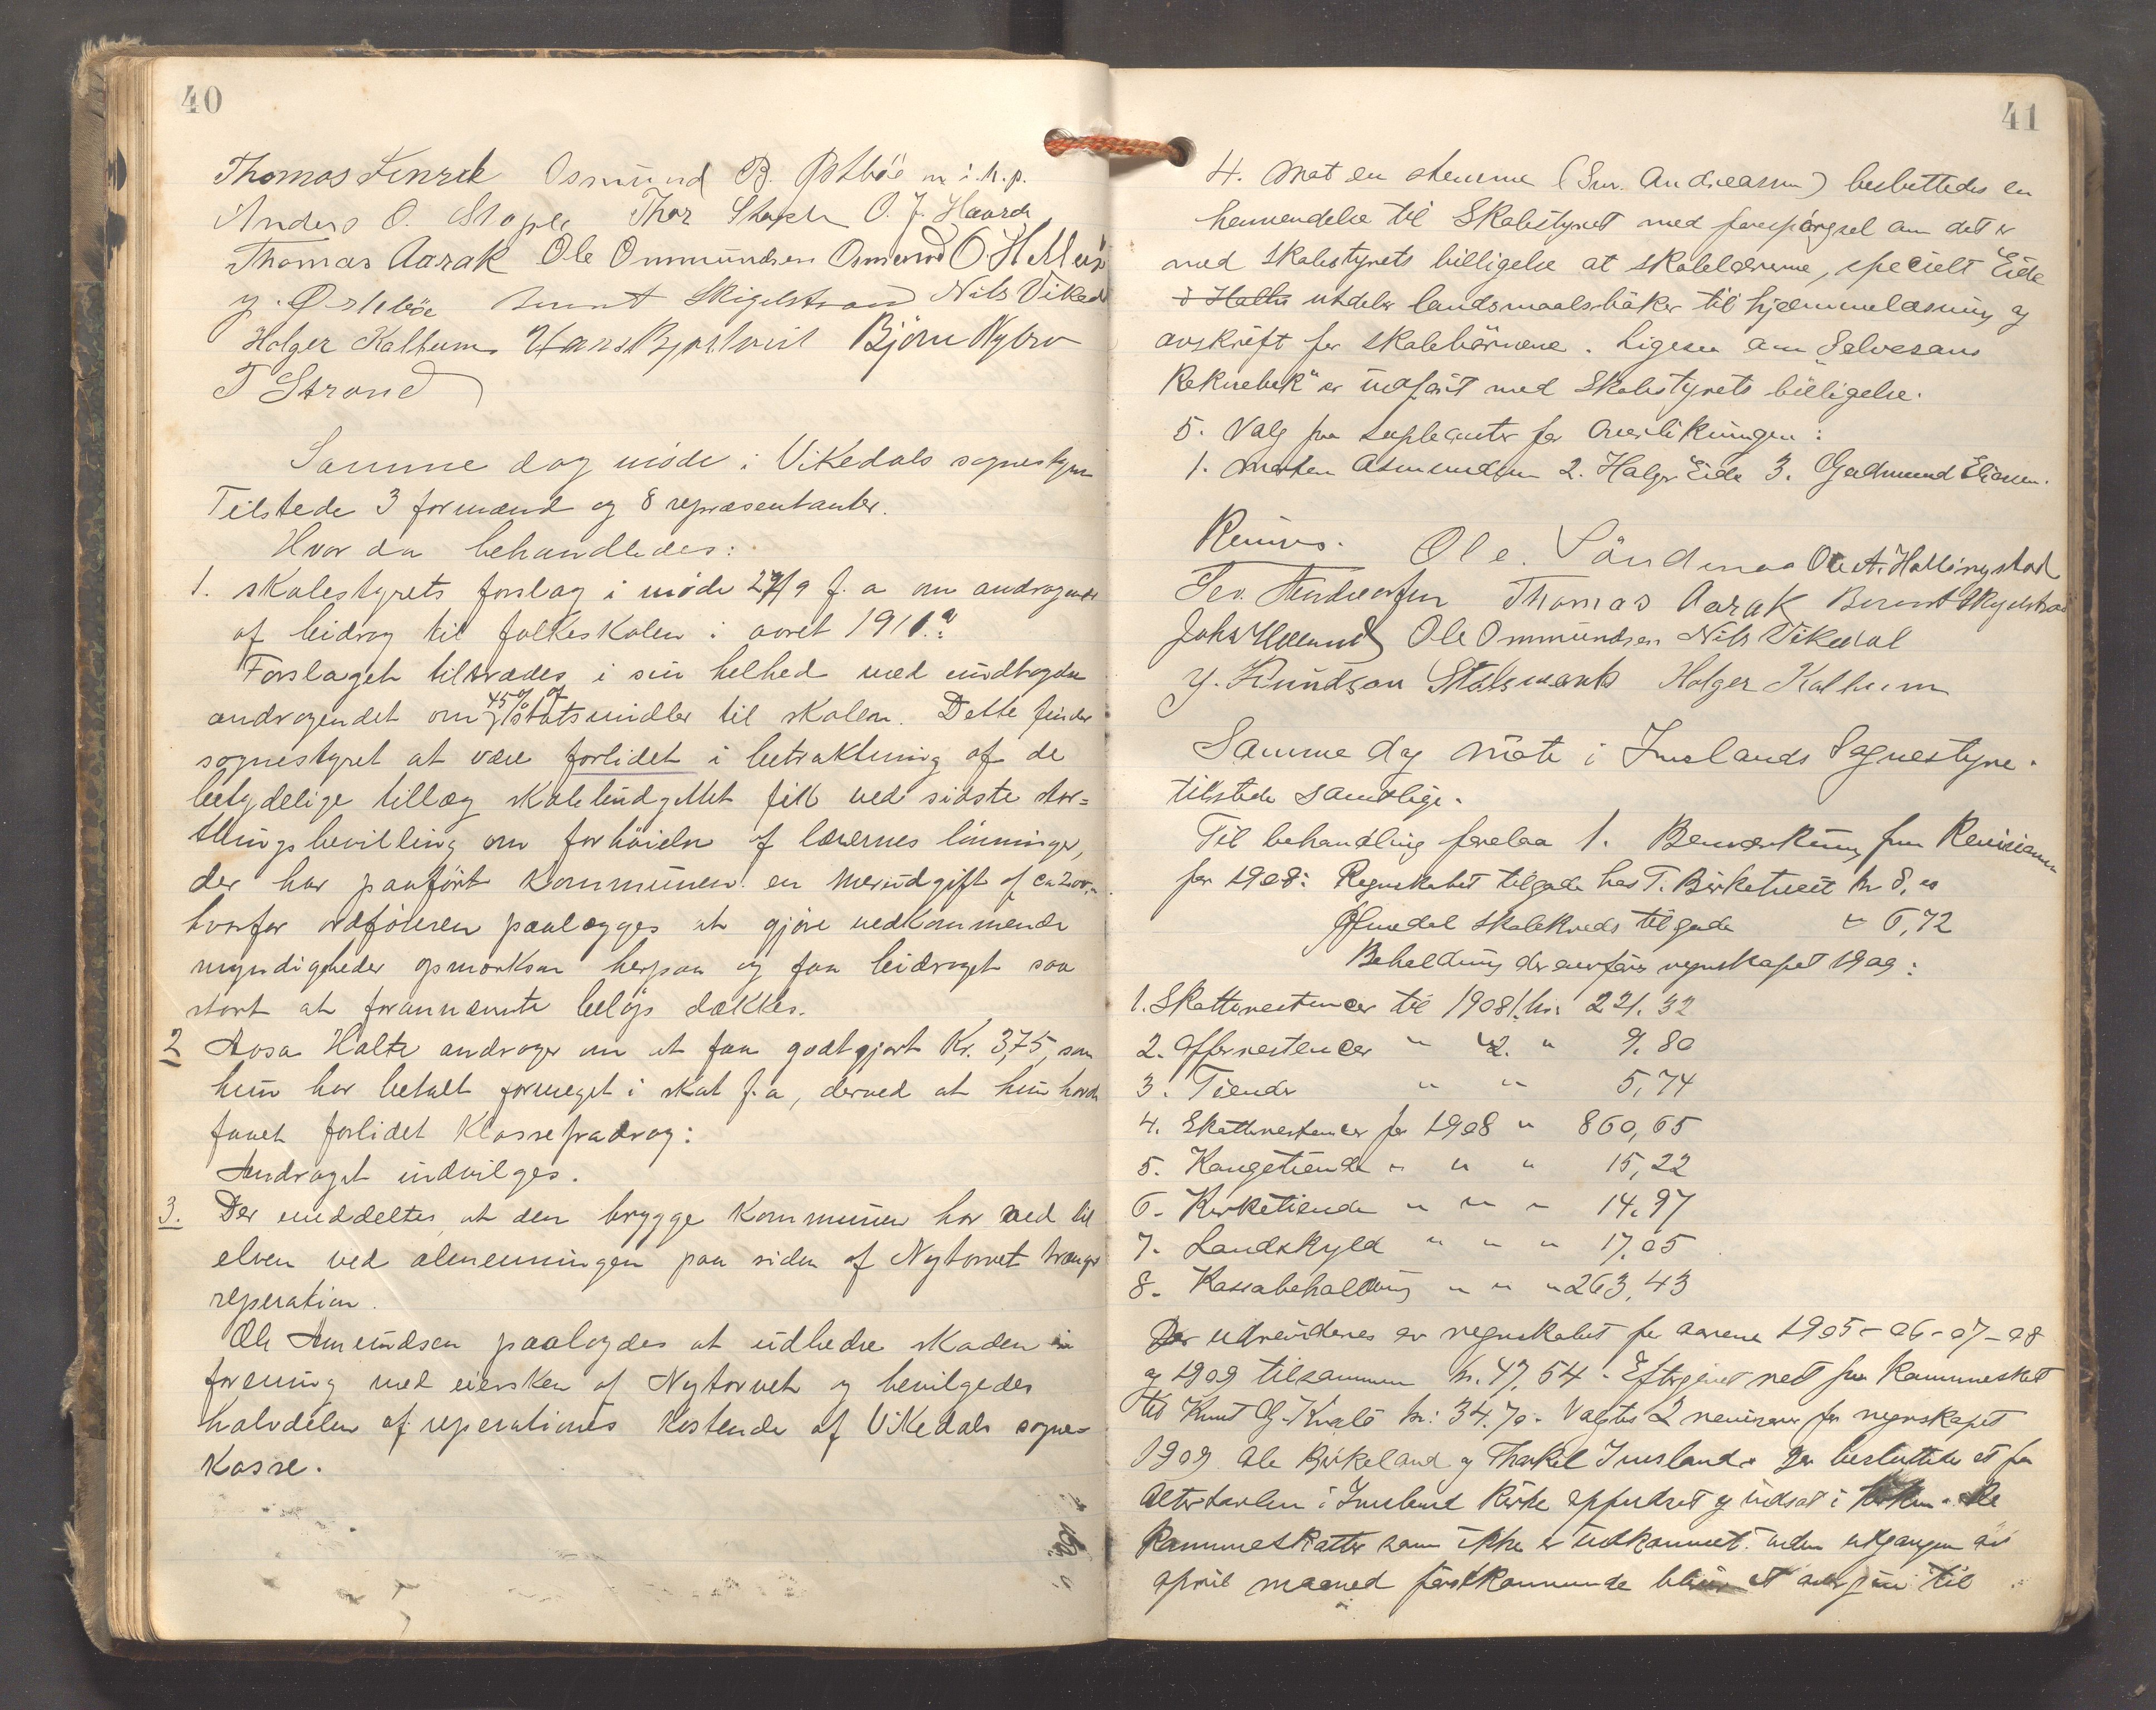 40
Thomas Osmund B. Østbøe m. i. h. p.
Anders O. Stople Thor Stople O. J. Haarde
Thomas Aarak Ole Ommundsen Osmund O.
Y. Ørslebøe Berent Skigelstrand Nils Vikedal
Holger Kalheim Hans Bjørn Nybro
T Strand
Samme dag møde i Vikedals sognestyre
Tilstede 3 formænd og 8 repræsentanter.
Hvor da behandledes:
1. skolestyrets forslag i møde 27/9 f. a om andragende
af bidrag til folkeskolen i aaret 1911.
Forslaget tiltrædes i sin helhed med undtagelse
andragendet om 45% af statsmidler til skolen. Dette finder
sognestyret at være forlidet i betraktning af de
betydelige tillæg skolebudgettet fik ved sidste stor=
tingsbevilling om forhøielse af lærernes lønninger,
der har paaført Kommunen en merudgift af ca 200,-
hvorfor ordføreren paalægges at gjøre vedkommende
myndigheder opmerksom herpaa og faa bidraget saa
stort at forannævnte beløp dækkes.
2 Aasa Halte andrager om at faa godtgjort Kr. 3,75, som
hun har betalt formeget i skat f. a, derved at hun havde
faaet forlidet Klassefradrag:
Andraget indvilges.
3. Der meddeltes at den brygge Kommunen har ned til
elven ved almenningen paa siden af Nytorvet trænger
reperation.
Ole Amundsen paalagdes at udbedre skaden i
forening med eiersken af Nytorvet og bevilgedes
halvdelen af reperationes Kostende af Vikedals sogne=
Kasse.
41
4. Mot en stemme (Sev. Andreassen) besluttedes en
henvendelse til Skolestyret med forespørgsel om det er
med skolestyrets billigelse at skolelærerne, specielt Eide
utdeler landsmaalsbøker til hjemmelæsning og
avskrift for skolebørnene. Ligesaa om Selvesans
Reknebok" er indført med Skolestyrets billigelse.
5. Valg paa supleanter for Overlikningen:
1. Morten Asmundsen 2. Halgr Eide 3. Gudmund Eliassen.
Ole. Søndenaa Ole A. Hallingstad
Sev. Andreassen Thomas Aarak Berent Skigelstrand
Ole Ommundsen Nils Vikedal
Y. Knudson Stølsmark Holger Kalheim
Samme dag møte i Imslands Sognestyre.
tilstede samtlige.
Til behandling forelaa 1. Bemærkning fra Revisionen
for 1908: Regnskabet tilgode hos T. Birketveit kr 8,
Ølmedal skolekreds tilgode " 6,72
Beholdning der overføres regnskapet 1909:
1. Skatterestancer til 1908 kr. 221.32
2. Offerrestancer " " " 9.80
3. Tiende " " 5,74
4. Skatterestancer for 1908 " 860,65
5. Kongetiende " " " 15,22
6. Kirketiende " " " 14.97
7. Landskyld " " " 17.05
8. Kassabeholdning " " " 263,43
Der utrevideres av regnskabet for aarene 1905-06-07-08
og 1909 tilsammen kr. 47,54. Eftergivet ned fra Kommuneskat
til Knut G. Kvale kr: 34.70. Valgtes 2 revisorer for regnskapet
1909 Ole Birkeland og Thorkel Imsland. Der besluttedes at faa
Altertavlen i Imsland Kirke oppudset og indsat i Kirken. De
Kommuneskatter som ikke er indkommet inden utgangen av
april maaned førstkommende blir at overgive til